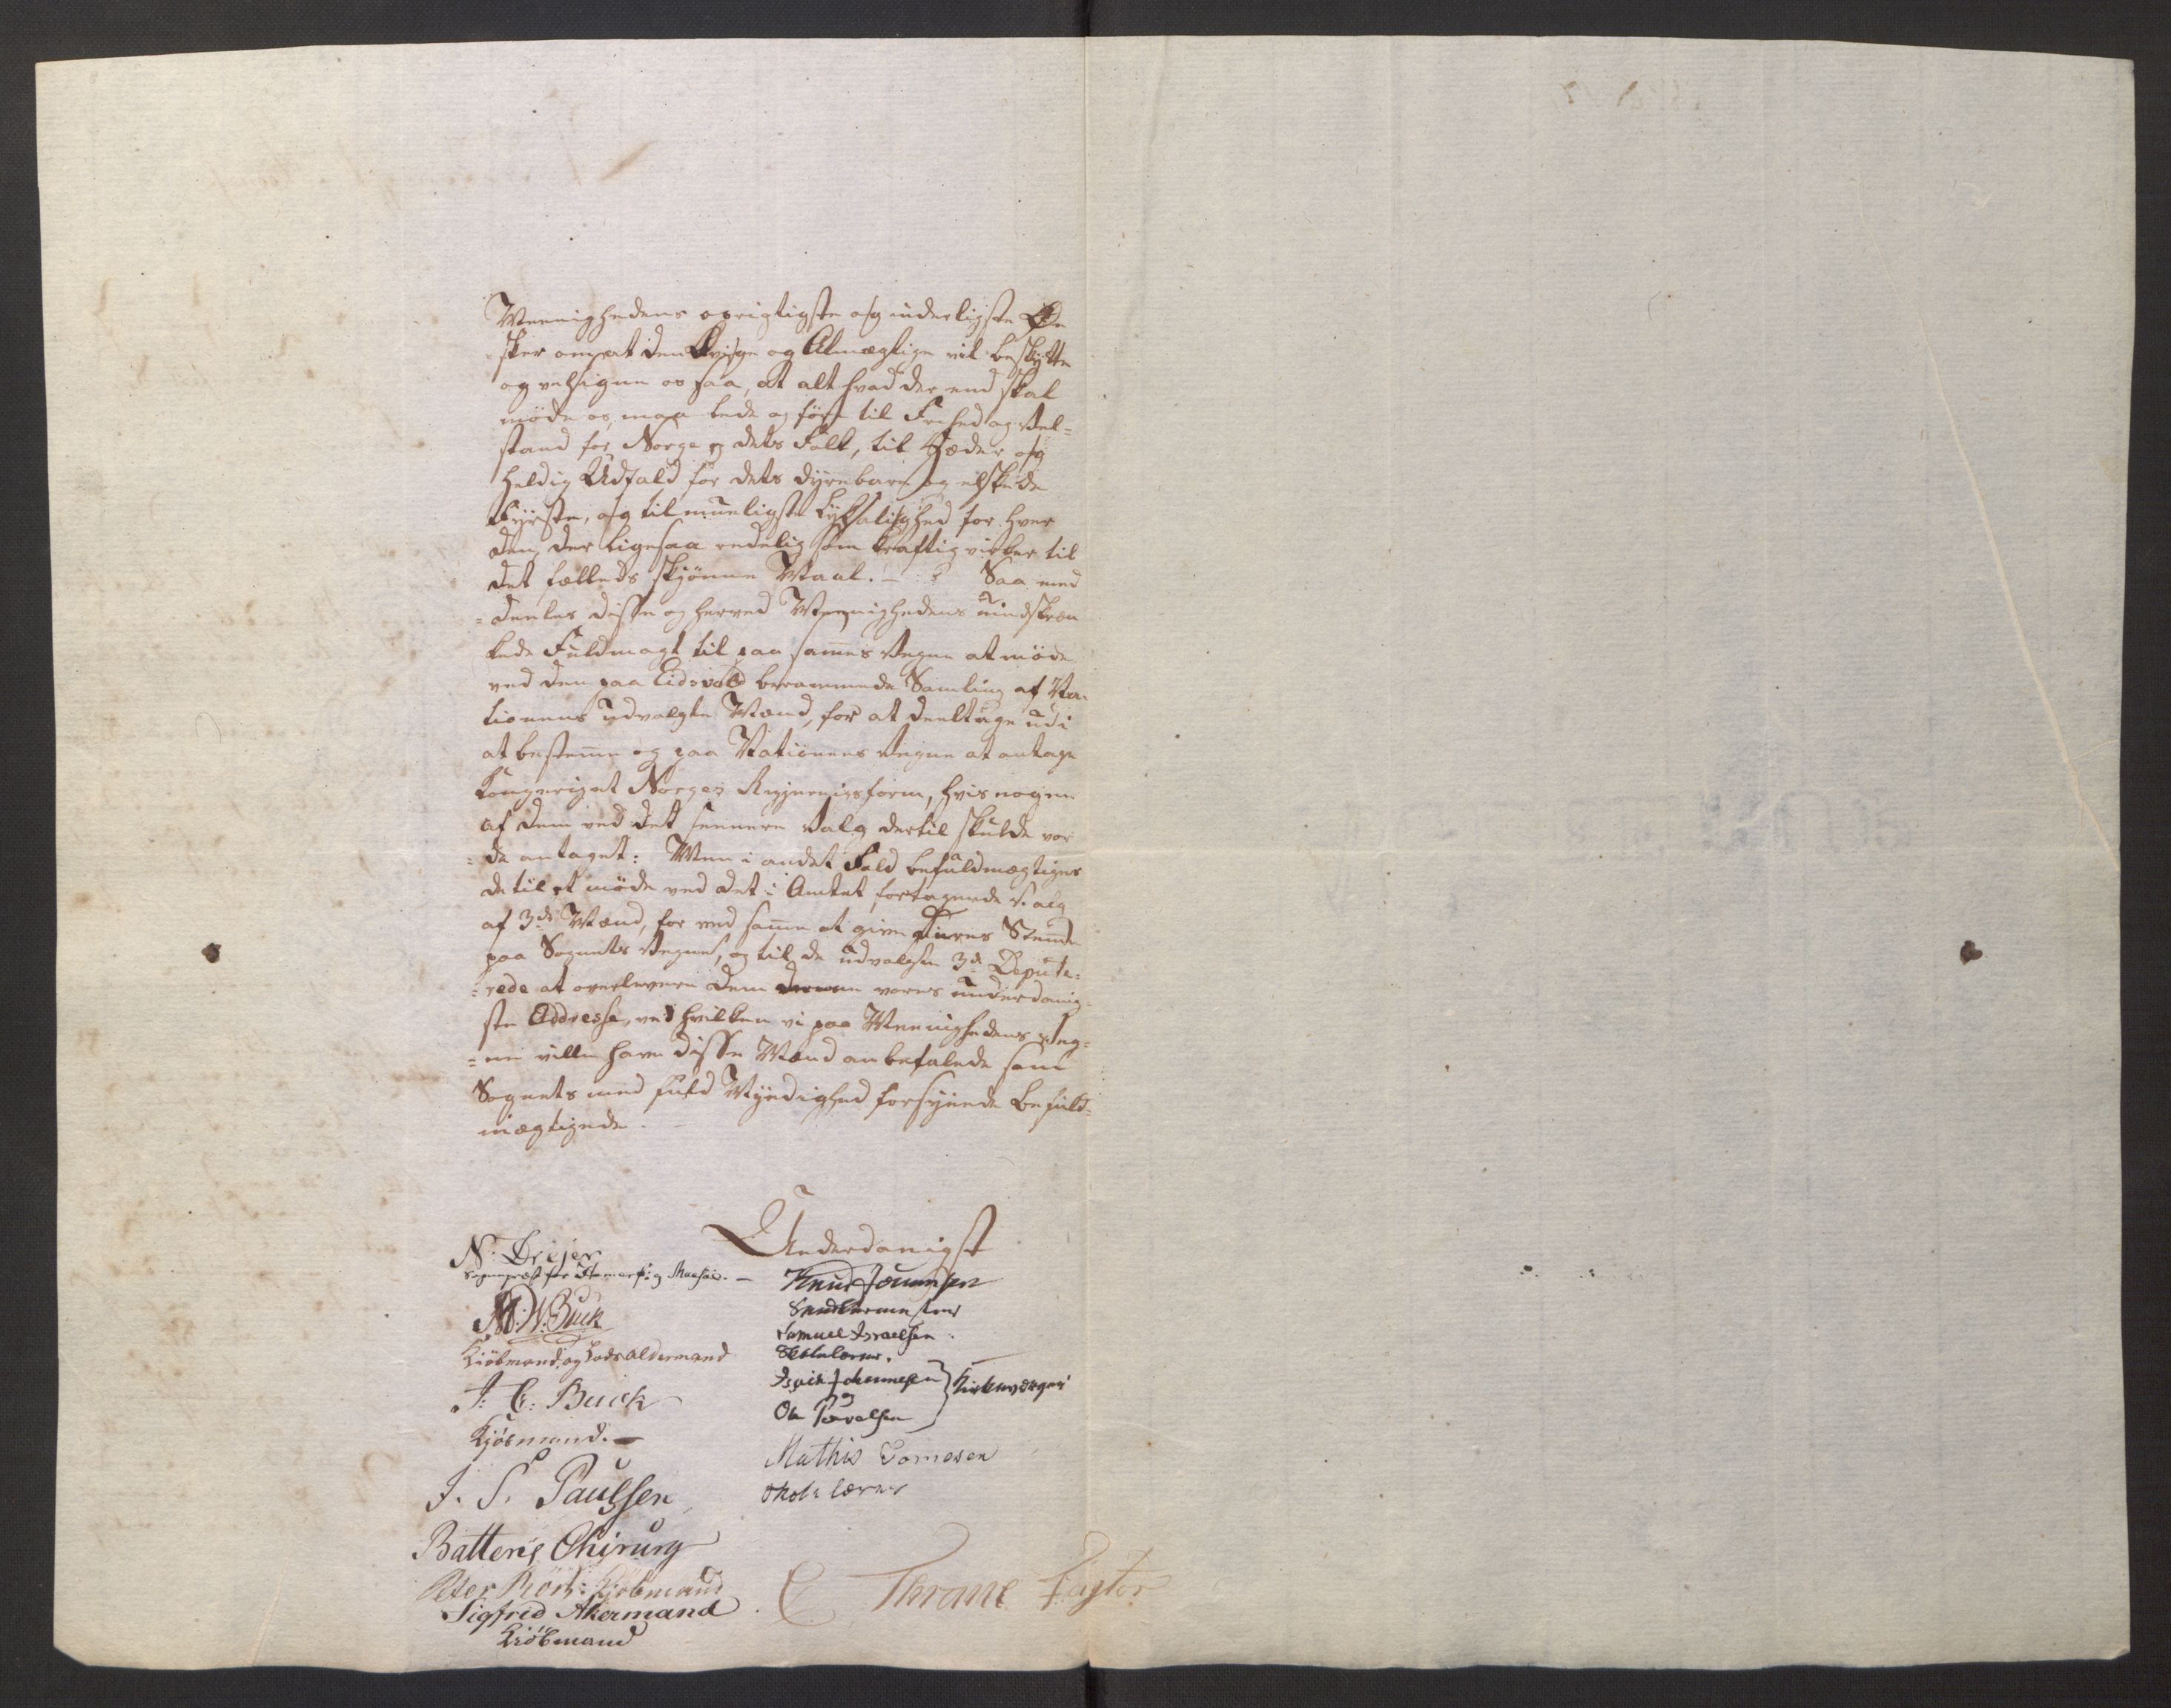 Meenighedens oprigtigste og inderligste Øn
sker om, at den Evige og Almægtige vil beskytte
og velsigne os saa, at alt hvad der end skal
møde os, maa lede og føre til Frihed og Vel=
stand for Norge og dets Folk, til Hæder og
heldig Udfald for dets dyrebare og elskede
Fyrste, og til mueligste Lyksalighed for hver
den, der ligesaa redelig som kraftig virker til
det fælleds skjønne Maal. — Saa med
=deeles disse og herved Meenighedens uindskræn
kede Fuldmagt til paa sammes Vegne at møde
ved den paa Eidsvold berammede Samling af Na=
tionens udvalgte Mænd, for at deeltage udi
at bestemme og paa Nationens Vegne at antage
Kongeriget Norges Regjeringsform, hvis nogen
af dem ved det senere Valg dertil skulde vor
=de antaget: Men i andet Fald befuldmægtiges
de til at møde ved det i Amtet foretagende Valg
af 3de Mænd, for ved samme at give deres Stemme
paa Sognets Vegne, og til de udvalgte 3de Depute=
=rede at overlevere dem denne vores underdanig=
ste Addresse, ved hvilken vi paa Meenighedens Veg=
=ne ville have disse Mænd anbefalede som
Sognets med fuld Myndighed forsynede befuld=
mægtigede.
Underdanigst
N: Drejer
Sognepræst for Hammerfest og Maasøe. —
M. W. Buck
Kiöbmand og Lods Oldermand
J: C: Buck
Kjöbmand. —
J. P. Paulsen
Batteris Chirurg
Peter Kjöbmand
Sigfrid Akermand
Kiöbmand
Knud
Samuel Israelsen
Skolelærer.
Isack Johannesen } Kirkeværger
Ole Povelsen
Mathis Tomesen
Skole lærer
C Thrane Fagtor